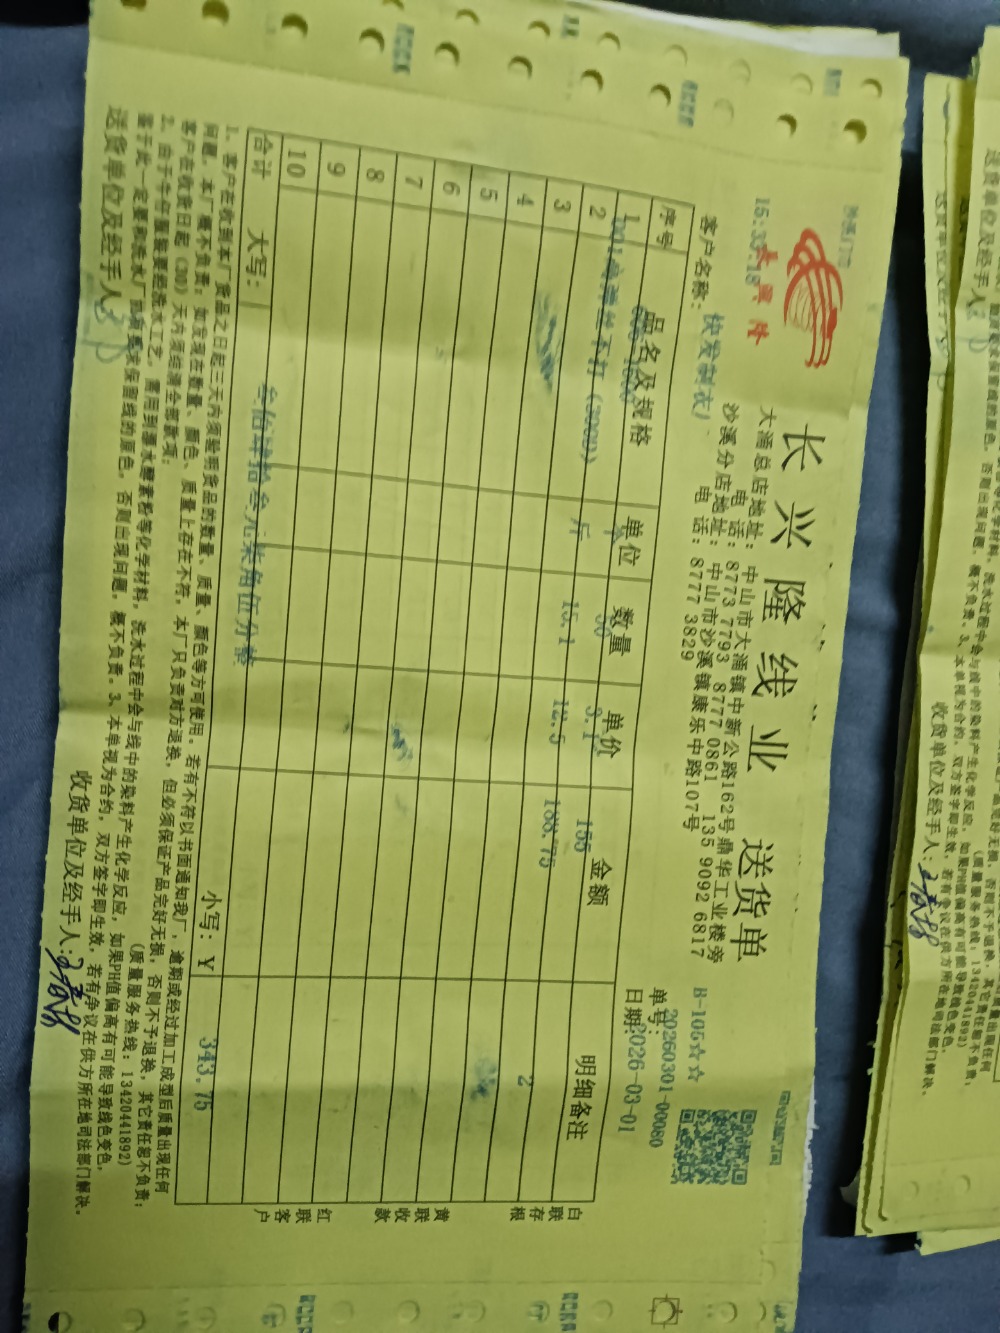 长兴隆线业 送货单
长兴隆
15:33:18
大涌总店地址：中山市大涌镇中新公路162号鼎华工业楼旁
电 话：8773 7793 8777 0861 135 9092 6817
沙溪分店地址：中山市沙溪镇康乐中路107号
电 话：8777 3829
H-105☆☆
单号：20260301-00080
日期：2026-03-01
客户名称：快发制衣）
序号 品名及规格 单位 数量 单价 金额 明细备注
1 50 3.1 155
2 (3000) 斤 15.1 12.5 188.75 2
3
4
5
6
7
8
9
10
合计 大写：叁佰肆拾叁元柒角伍分整 小写：￥ 343.75
白联存根
黄联收款
红联客户
1、客户在收到本厂货品之日起三天内须验明货品的数量、质量、颜色等方可使用。若有不符以书面通知我厂，逾期或经过加工成型后质量出现任何
问题，本厂概不负责；如发现在数量、颜色、质量上存在不符，本厂只负责对方退换，但必须保证产品完好无损，否则不予退换，其它责任恕不负责；
客户在收货日起（30）天内须结清全部款项；
（质量服务热线：13420441892）
2、由于牛仔服装要经洗水工艺，需用到漂水酵素粉等化学材料，洗水过程中会与线中的染料产生化学反应，如果PH值偏高有可能导致线色变色，
鉴于此一定要和洗水厂说明要求保留线的原色，否则出现问题，概不负责。3、本单视为合约，双方签字即生效，若有争议在供方所在地司法部门解决。
送货单位及经手人：
收货单位及经手人：
收货单位及经手人：